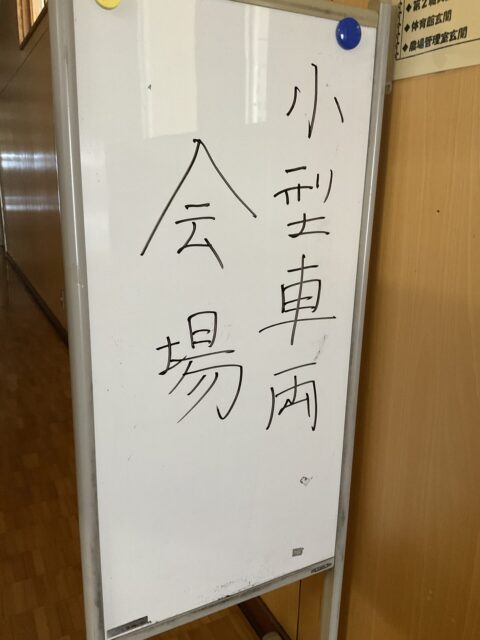 小型車両
会場
◆体育館玄関
◆農場管理室玄関